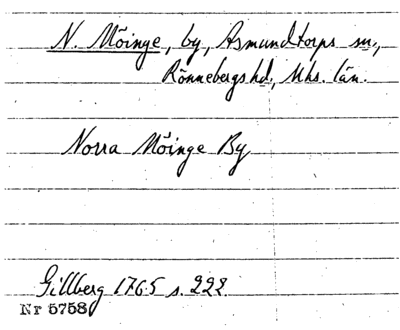 N. Möinge, by, Asmundtorps sn.,
Rönnebergs hd., Mhs. län.
Norra Möinge By
Gillberg 1765 s. 222.
Nr 5758